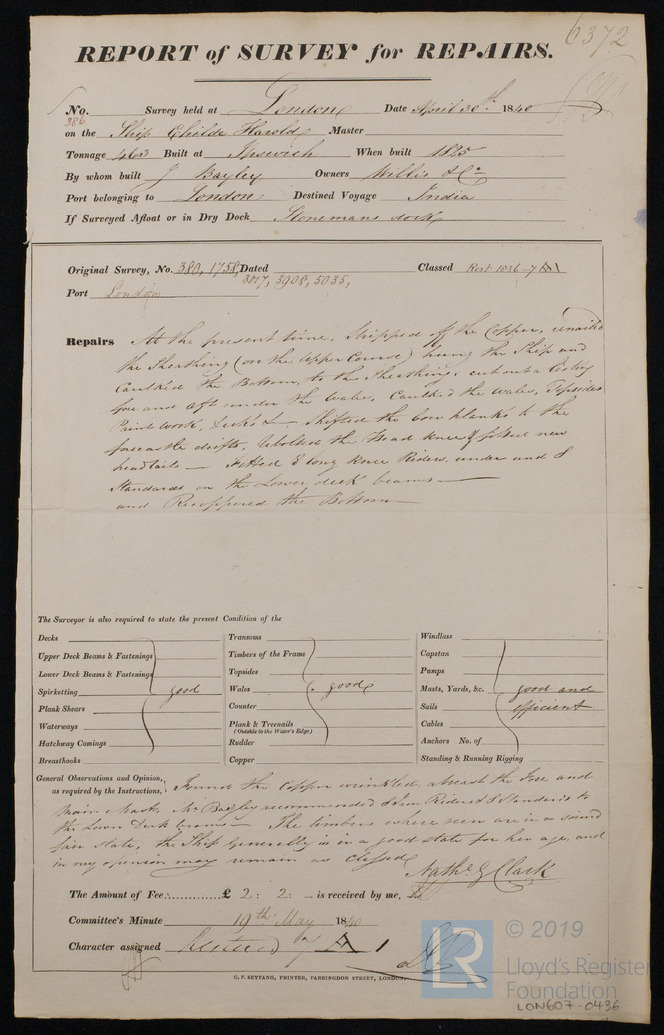 6372
REPORT of SURVEY for REPAIRS.
No. 386 Survey held at London Date April 30th 1840
on the Ship Childe Harold Master
Tonnage 463 Built at Ipswich When built 1825
By whom built J Bayley Owners Willis & Co
Port belonging to London Destined Voyage India
If Surveyed Afloat or in Dry Dock Stonemans dock
Original Survey, No. 380, 1758, Dated Classed Rest 1836-7 A1
3017, 3908, 5035,
Port London
Repairs At the present time, Stripped off the Copper,
the Sheathing (on the Upper Course) hung the Ship and
Caulked the Bottom, to the Sheathing, cut out a listing
fore and aft under the Wales, Caulked the Wales, Topsides
Paint Work, Decks &c Shifted the bow planks to the
forecastle drifts, Ubolted the Head Knee & fitted new
headrails — Fitted 8 long Knee Riders, under and 8
Standards on the Lower deck beams —
and Recoppered the Bottom
The Surveyor is also required to state the present Condition of the
Decks
Upper Deck Beams & Fastenings
Lower Deck Beams & Fastenings
Spirketting good
Plank Shears
Waterways
Hatchway Comings
Breasthooks
Transoms
Timbers of the Frame
Topsides
Wales good
Counter
Plank & Treenails
(Outside to the Water's Edge)
Rudder
Copper
Windlass
Capstan
Pumps
Masts, Yards, &c. good and
Sails efficient
Cables
Anchors No. of
Standing & Running Rigging
General Observations and Opinion, Found the Copper wrinkled abreast the Fore and
as required by the Instructions, Main Masts, Mr Bayley recommended Iron Riders & Standards to
the Lower Deck beams — The timbers where seen are in a sound
fair state, the Ship generally is in a good state for her age, and
in my opinion may remain as classed
Nathl G Clark
The Amount of Fee £ 2: 2: – is received by me,
Committee's Minute 19th May 1840
Character assigned A 1
C. F. SEYFANG, PRINTER, FARRINGDON STREET, LONDON.
© 2019
LR
Lloyd's Register
Foundation
LON607-0436